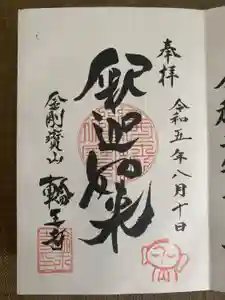 奉拝
令和五年八月十日
釈迦如来
金剛寳山
輪王寺